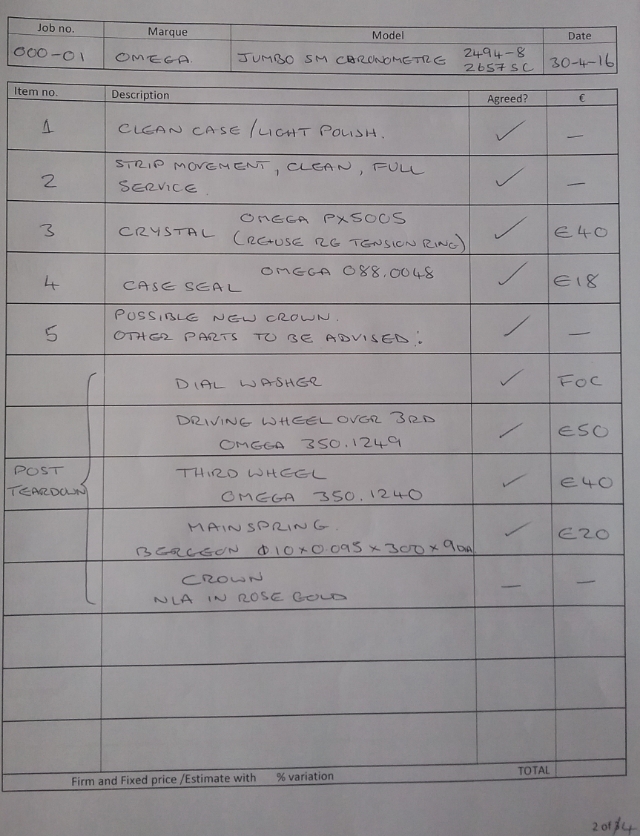 Job no. Marque Model Date
000-01 OMEGA JUMBO SM CHRONOMETRE 2494-8 2657 SC 30-4-16
Item no. Description Agreed? €
1 CLEAN CASE / LIGHT POLISH. ✓ —
2 STRIP MOVEMENT, CLEAN, FULL
SERVICE. ✓ —
3 CRYSTAL OMEGA PX5005
(RE-USE RG TENSION RING) ✓ €40
4 OMEGA 088.0048
CASE SEAL ✓ €18
5 POSSIBLE NEW CROWN.
OTHER PARTS TO BE ADVISED: ✓ —
DIAL WASHER ✓ FOC
DRIVING WHEEL OVER 3RD
OMEGA 350.1249 ✓ €50
POST
TEARDOWN
THIRD WHEEL
OMEGA 350.1240 ✓ €40
MAINSPRING.
BERGEON Φ10×0.095×300×9 ✓ €20
CROWN
NLA IN ROSE GOLD — —
Firm and Fixed price /Estimate with % variation TOTAL
2 of 4